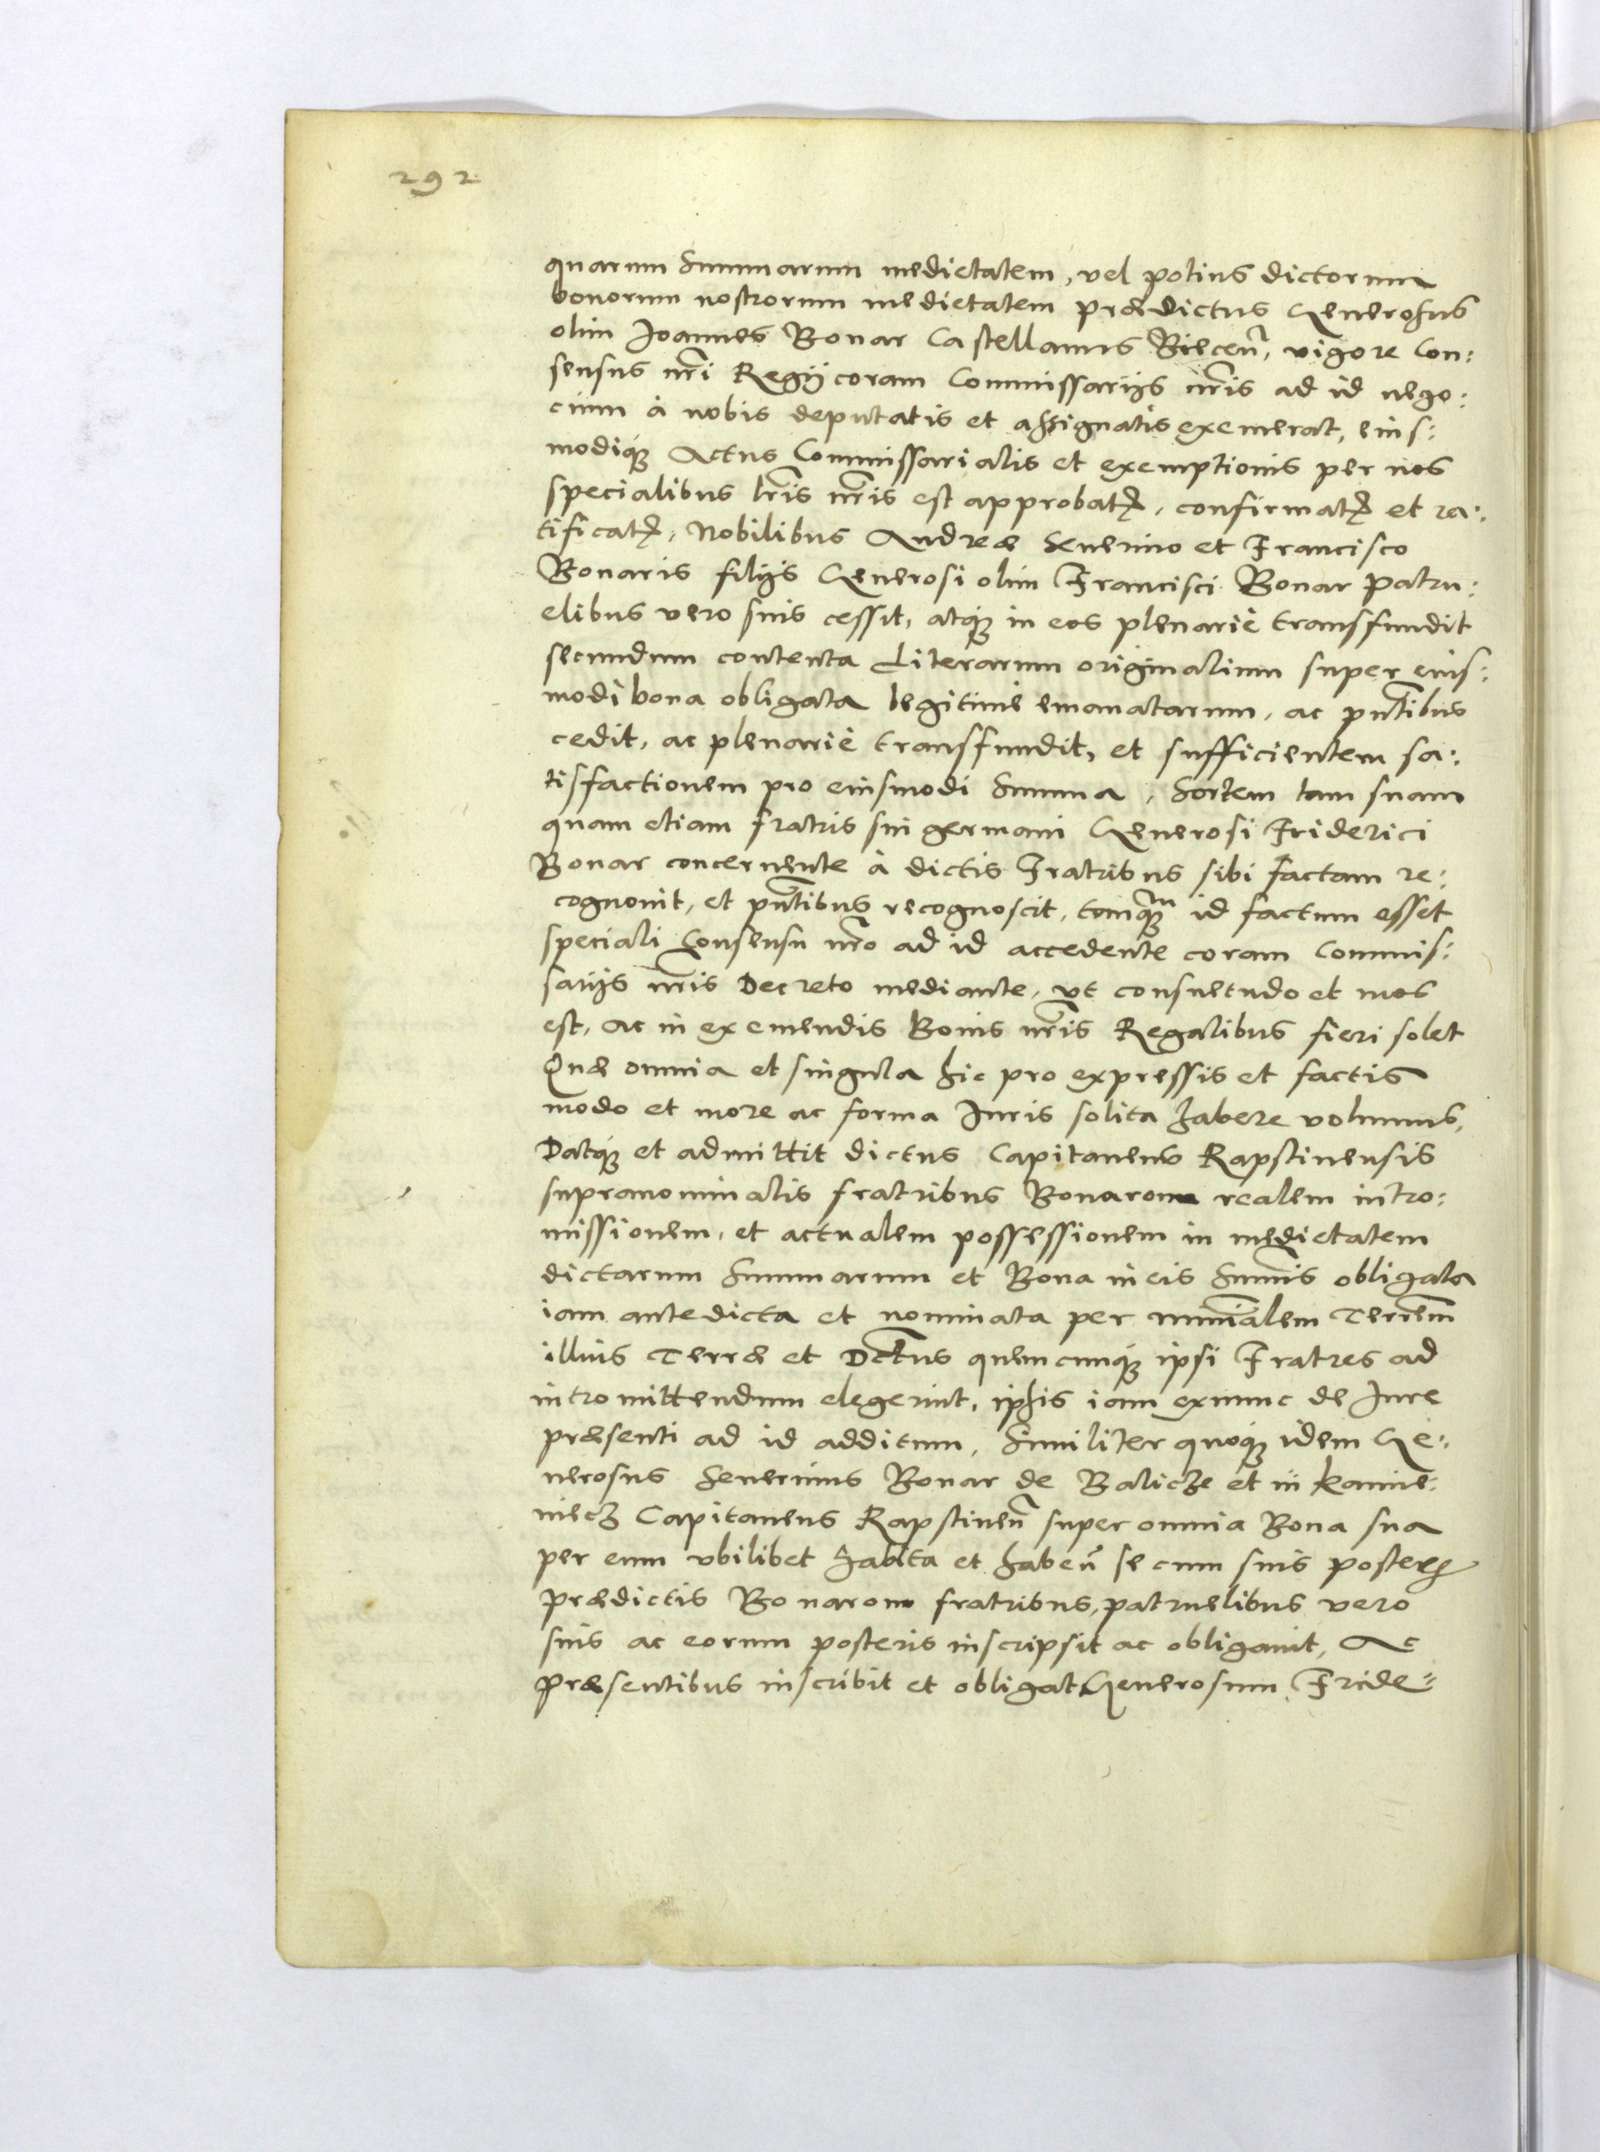 292
quarum Summarum medietatem, vel potius dictorum
bonorum nostrorum medietatem prædictus Generosus
olim Joannes Bonar Castellanus Biecen̄, vigore Con:
sensus nr̄i Regij coram Commissarijs nr̄is ad id nego:
cium à nobis deputatis et assignatis exemerat, eius:
modiq́ꝫ Actus Commissarialis et exemptionis per nos
specialibus lr̄is nr̄is est approbatꝫ, confirmatꝫ et ra:
tificatꝫ, Nobilibus Andreæ Seuerino et Francisco
Bonaris filijs Generosi olim Francisci Bonar patru:
elibus vero suis cessit, atq́ꝫ in eos plenariè transfundit
secundum contenta Literarum originalium super eius:
modi bona obligata legitimè emanatarum, ac pn̄tibus
cedit, ac plenariè transfundit, et sufficientem sa:
tisfactionem pro eiusmodi Summa, Sortem tam suam
quam etiam fratris sui germani Generosi Friderici
Bonar concernente à dictis Fratribus sibi factam re:
cognouit, et pn̄tibus recognoscit, tanq́ꝫm id factum esset
speciali Consensu nr̄o ad id accedente coram Commis:
sarijs nr̄is Decreto mediante, vt consuetudo et mos
est, ac in exemendis Bonis nr̄is Regalibus fieri solet
Quæ omnia et singula hic pro expressis et factis
modo et more ac forma Juris solita habere volumus,
Datq́ꝫ et admittit dictus Capitaneus Rapstinensis
supranominatis fratribus Bonarom realem intro:
missionem, et actualem possessionem in medietatem
dictarum Summarum et Bona in eis Sum̄is obligata
iam antedicta et nominata per min̄ialem Terrēm
illius Terræ et Dc̄tus quemcunq́ꝫ ipsi Fratres ad
intromittendum elegerint, ipsis iam exnunc de Jure
præsenti ad id additum, Similiter quoq́ꝫ idem Ge:
nerosus Seuerinus Bonar de Balicze et in Kamie:
niecz Capitaneus Rapstinen̄ super omnia Bona sua
per eum vbilibet habita et haben̄ se cum suis posterꝭ
prædictis Bonarom fratribus, patruelibus vero
suis ac eorum posteris inscripsit ac obligauit, Ac
præsentibus inscribit et obligat Generosum Fride: